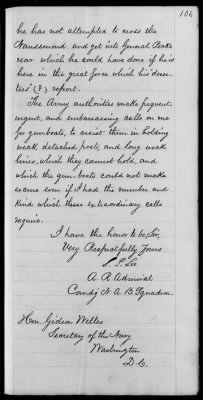 106
he has not attempted to cross the
Nansemond and get into General Peck's
rear which he could have done if he is
here in the great force which his deser-
ters' (?) report.
The Army authorities make frequent,
urgent, and embarrassing calls on me
for gunboats, to assist them in holding
weak detached posts, and long weak
lines, which they cannot hold, and
which the gun-boats could not make
secure even if I had the number and
kind which these extraordinary calls
require.
I have the honor to be, Sir,
Very Respectfully Yours
S. P. Lee
A. R. Admiral
Comdg N. A. B. Squadron.
Hon. Gideon Welles
Secretary of the Navy
Washington
D. C.